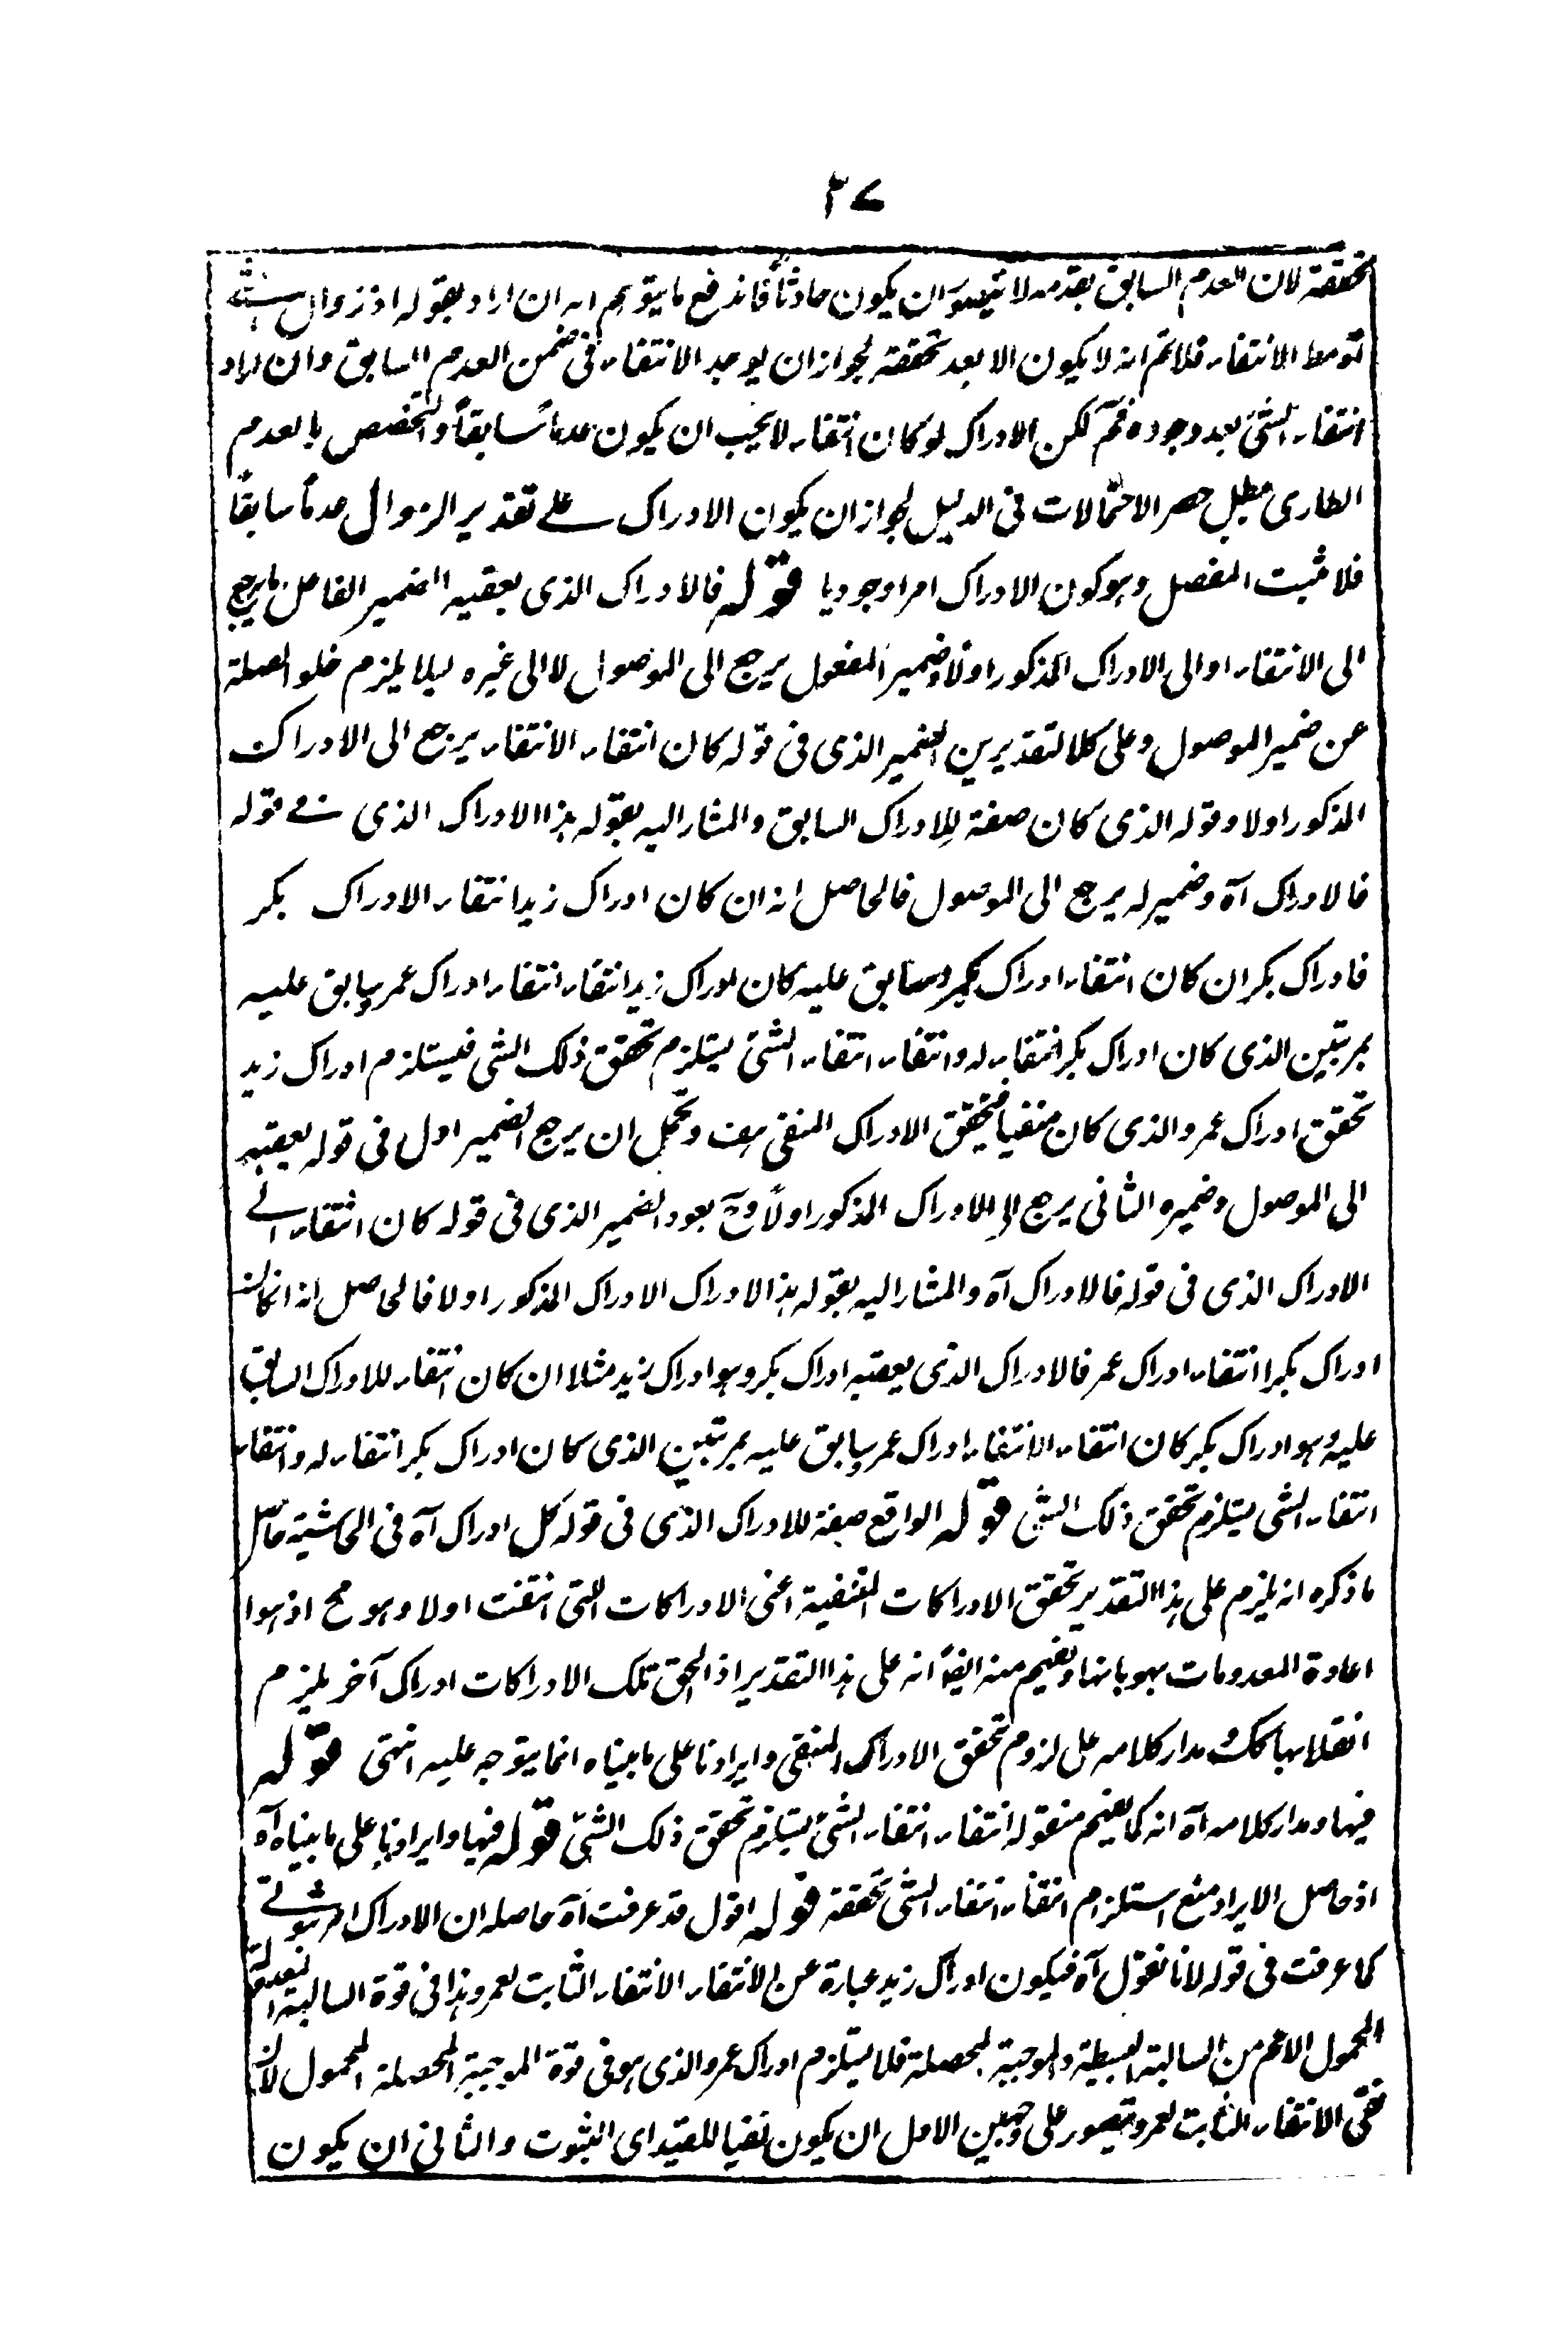 ٣٧
تحققة لان العدم السابق بقدمه لا يتصور ان يكون حادثاً فاندفع ما يتوهم انه ان اراد بقوله اذ زوال شئ
توسط الانتفاء فلا نم انه لا يكون الا بعد تحققة لجواز ان يوجد الانتفاء فى ضمن العدم السابق وان اراد
انتفاء الشئ بعد وجوده فمم لكن الادراك لو كان انتفاء لا يجب ان يكون عدماً سابقاً والتخصص بالعدم
الطارى مبطل حصر الاحتمالات فى الدليل لجواز ان يكون الادراك على تقدير الزوال عدماً سابقاً
فلا مثبت المفصل وهو كون الادراك امرا وجوديا قوله فالادراك الذى يعقبه الضمير الفاعل يرجع
الى الانتفاء او الى الادراك المذكور اولا وضمير المفعول يرجع الى الموصول لا الى غيره ليلا يلزم خلو الصلة
عن ضمير الموصول وعلى كلا لتقديرين الضمير الذى فى قوله كان انتفاء الانتفاء يرجع الى الادراك
المذكور اولا وقوله الذى كان صفة للادراك السابق والمشار اليه بقوله هذا الادراك الذى فى قوله
فالادراك آه وضمير له يرجع الى الموصول فالحاصل انه ان كان ادراك زيد انتفاء الادراك بكر
فادراك بكر ان كان انتفاء ادراك سابق عليه كان ادراك زيد انتفاء انتفاء ادراك عمر سابق عليه
بمرتبتين الذى كان ادراك بكر انتفاء له وانتفاء انتفاء الشئ يستلزم تحقق ذلك الشى فيستلزم ادراك زيد
تحقق ادراك عمرو الذى كان منفيا فيتحقق الادراك المنفى هف ويحتمل ان يرجع الضمير اول فى قوله يعقبه
الى الموصول وضميره الثانى يرجع الى الادراك المذكور اولاً وح يعود الضمير الذى فى قوله كان انتفاء الى
الادراك الذى فى قوله فالادراك آه والمشار اليه بقوله هذا الادراك الادراك المذكور اولا فالحاصل انه انكان
ادراك بكر انتفاء ادراك عمر فالادراك الذى يعقبه ادراك بكر وهو ادراك زيد مثلا ان كان انتفاء للادراك السابق
عليه وهو ادراك بكر كان انتفاء الانتفاء ادراك عمر سابق عليه بمرتبتين الذى كان ادراك بكر انتفاء له وانتفاء
انتفاء الشى يستلزم تحقق ذلك الشى قوله الواقع صفة للادراك الذى فى قوله كل ادراك آه فى الحاشية حاصل
ما ذكره انه يلزم على هذا التقدير تحقق الادراكات المنفية اعنى الادراكات التى انتفت اولا وهو مح اذ هوا
اعادة المعدومات بهوياتها ويفهم منه ايضاً انه على هذا التقدير اذ الحق تلك الادراكات ادراك آخر يلزم
انقلابها كك مدار كلامه على لزوم تحقق الادراك المنفى وايرادنا على ما بيناه انما يتوجه عليه انتهى قوله
فيها ومدار كلامه آه انه كما يفهم من قوله انتفاء انتفاء الشئ يستلزم تحقق ذلك الشئ قوله فيها وايرادنا على ما بيناه آه
اذ حاصل الايراد منع استلزام انتفاء انتفاء الشى تحققة قوله اقول قد عرفت آه حاصله ان الادراك امر ثبوتى
كما عرفت فى قوله لانا نقول آه فيكون ادراك زيد عبارة عن الانتفاء الانتفاء الثابت لعمرو وهذا فى قوة السالبة المعدولة
المحمول الاعم من السالبة البسيطة والموجبة المحصلة فلا يستلزم ادراك عمرو الذى هو فى قوة الموجبة المحصلة المحمول لان
نفى الانتفاء الثابت لعمرو يتصور على وجهين الاول ان يكون نفيا للقيد اى الثبوت والثانى ان يكون